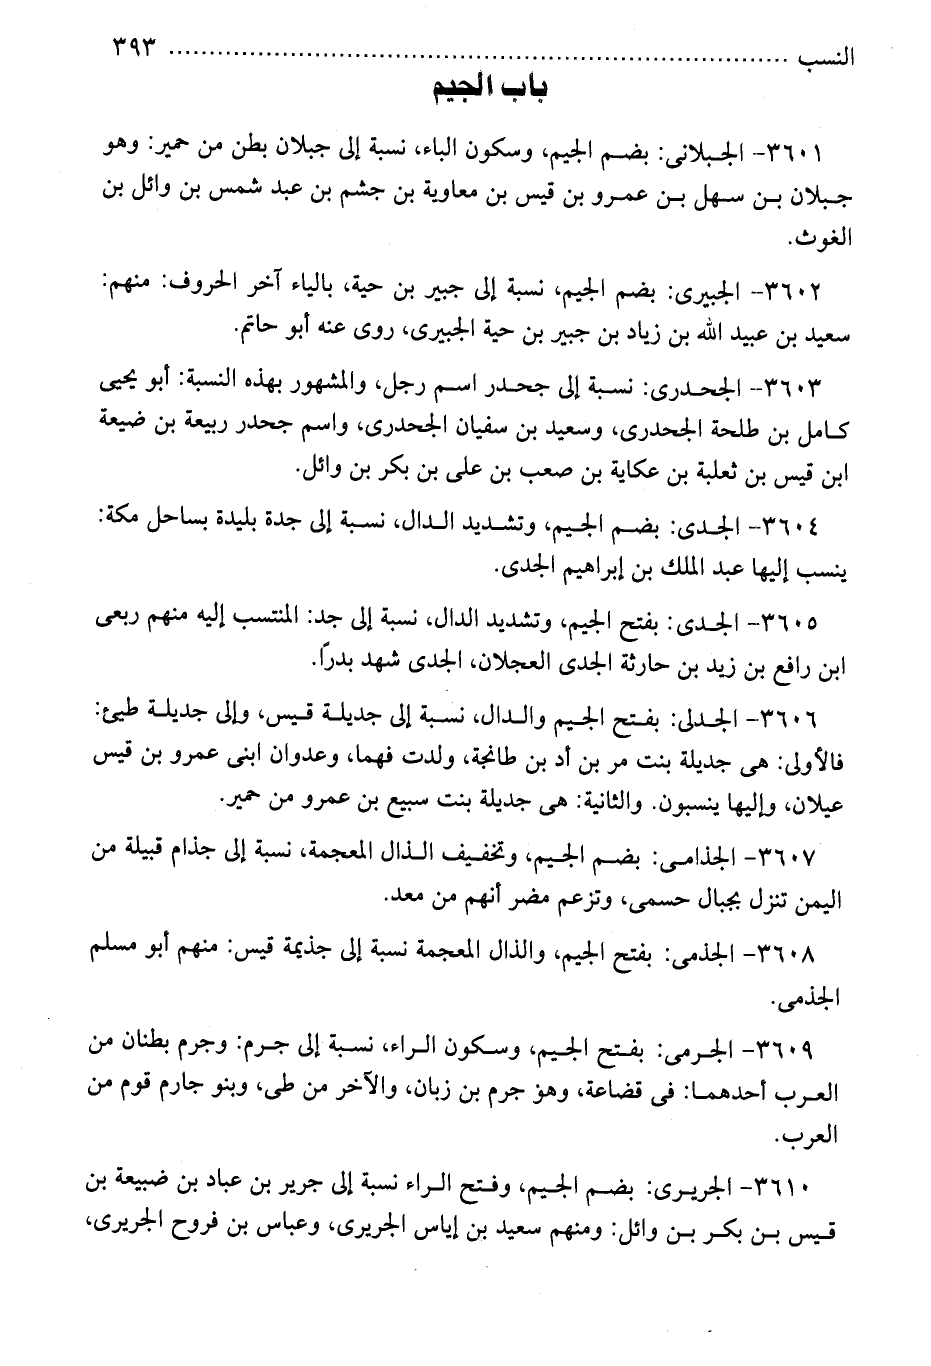 النسب ........................................................................ ٣٩٣
باب الجيم
٣٦٠١- الجبلانى: بضم الجيم، وسكون الباء، نسبة إلى جبلان بطن من حمير: وهو
جبلان بن سهل بن عمرو بن قيس بن معاوية بن جشم بن عبد شمس بن وائل بن
الغوث.
٣٦٠٢- الجبيرى: بضم الجيم، نسبة إلى جبير بن حية، بالياء آخر الحروف: منهم:
سعيد بن عبيد الله بن زياد بن جبير بن حية الجبيرى، روى عنه أبو حاتم.
٣٦٠٣- الجحدرى: نسبة إلى جحدر اسم رجل، والمشهور بهذه النسبة: أبو يحيى
كامل بن طلحة الجحدرى، وسعيد بن سفيان الجحدرى، واسم جحدر ربيعة بن ضيعة
ابن قيس بن ثعلبة بن عكاية بن صعب بن على بن بكر بن وائل.
٣٦٠٤- الجدى: بضم الجيم، وتشديد الدال، نسبة إلى جدة بليدة بساحل مكة:
ينسب إليها عبد الملك بن إبراهيم الجدى.
٣٦٠٥- الجدى: بفتح الجيم، وتشديد الدال، نسبة إلى جد: المنتسب إليه منهم ربعى
ابن رافع بن زيد بن حارثة الجدى العجلان، الجدى شهد بدرًا.
٣٦٠٦- الجدلى: بفتح الجيم والدال، نسبة إلى جديلة قيس، وإلى جديلة طيئ:
فالأولى: هى جديلة بنت مر بن أد بن طانجة، ولدت فهما، وعدوان ابنى عمرو بن قيس
عيلان، وإليها ينسبون. والثانية: هى جديلة بنت سبيع بن عمرو من حمير.
٣٦٠٧- الجذامى: بضم الجيم، وتخفيف الذال المعجمة، نسبة إلى جذام قبيلة من
اليمن تنزل بجبال حسمى، وتزعم مضر أنهم من معد.
٣٦٠٨- الجذمى: بفتح الجيم، والذال المعجمة نسبة إلى جذيمة قيس: منهم أبو مسلم
الجذمى.
٣٦٠٩- الجرمى: بفتح الجيم، وسكون الراء، نسبة إلى جرم: وجرم بطنان من
العرب أحدهما: فى قضاعة، وهو جرم بن زبان، والآخر من طى، وبنو جارم قوم من
العرب.
٣٦١٠- الجريرى: بضم الجيم، وفتح الراء نسبة إلى جرير بن عباد بن ضبيعة بن
قيس بن بكر بن وائل: ومنهم سعيد بن إياس الجريرى، وعباس بن فروح الجريرى،